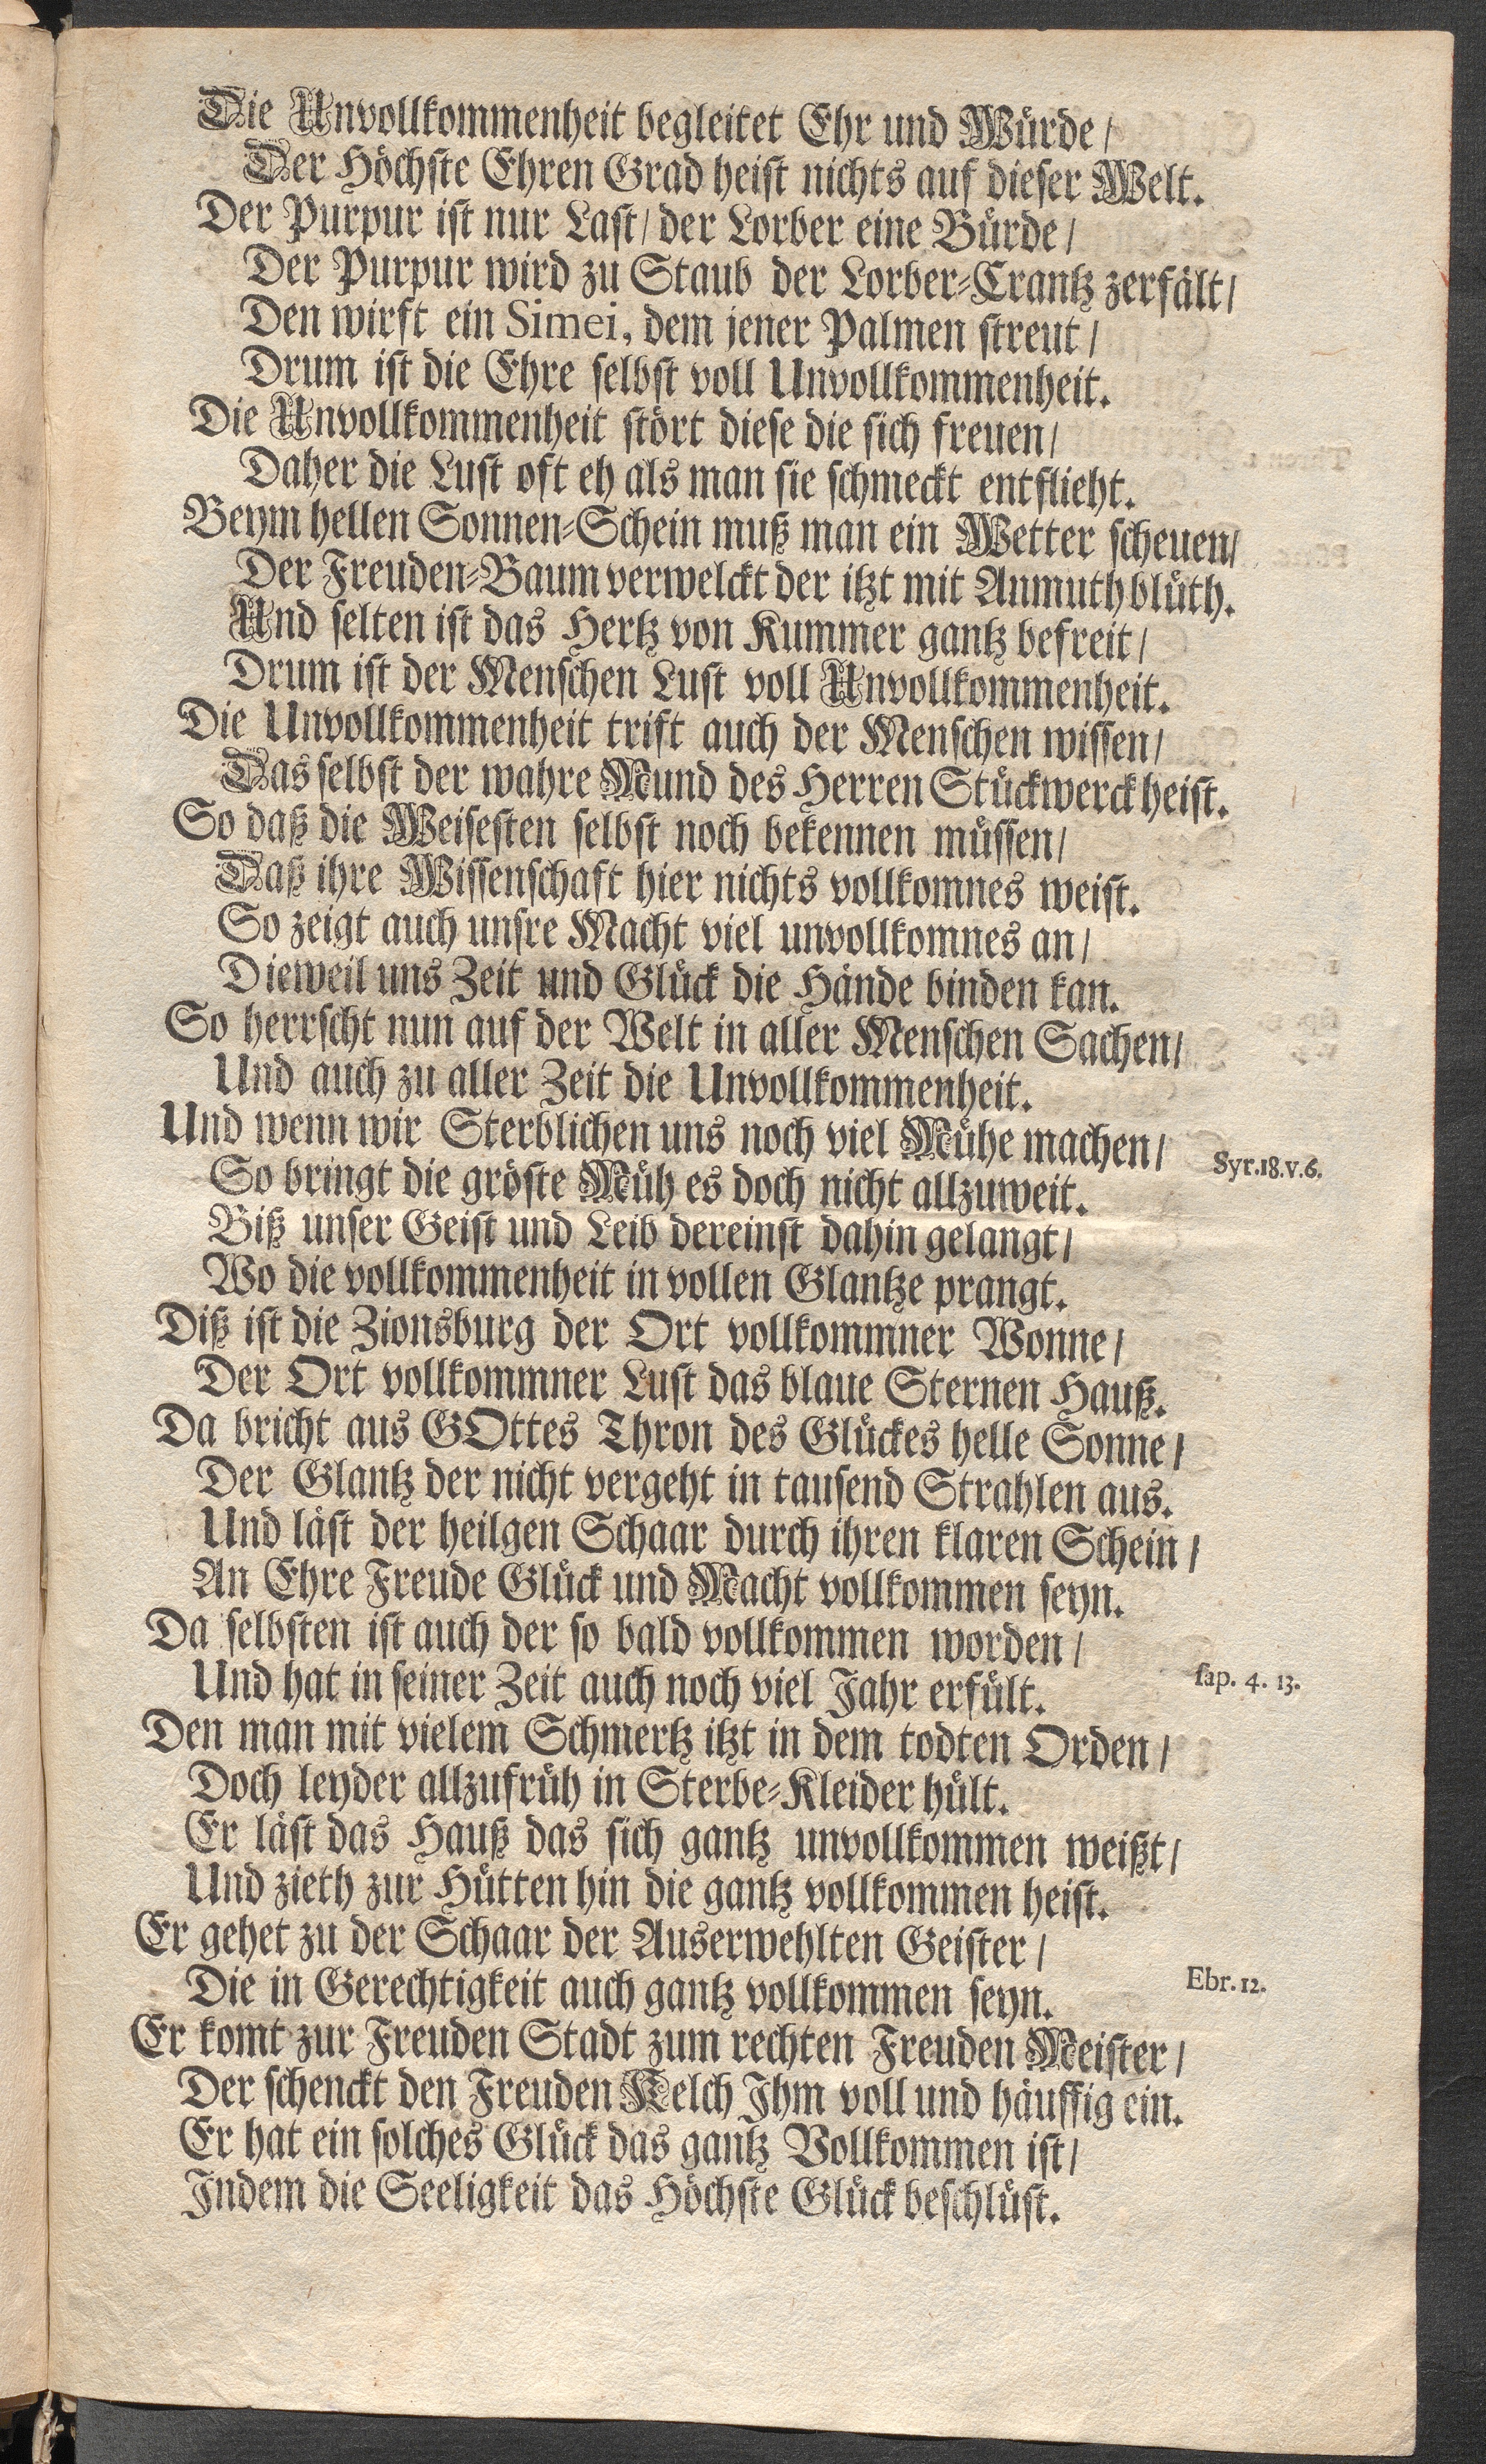 Die Unvollkommenheit begleitet Ehr und Würde/
Der Höchste Ehren Grad heist nichts auf dieser Welt.
Der Purpur ist nur Last/ der Lorber eine Bürde/
Der Purpur wird zu Staub der Lorber-Crantz zerfält/
Den wirft ein Simei, dem jener Palmen streut/
Drum ist die Ehre selbst voll Unvollkommenheit.
Die Unvollkommenheit stört diese die sich freuen/
Daher die Lust oft eh als man sie schmeckt entflieht.
Beym hellen Sonnen-Schein muß man ein Wetter scheuen/
Der Freuden-Baum verwelckt der itzt mit Anmuth blüth.
Und selten ist das Hertz von Kummer gantz befreit/
Drum ist der Menschen Lust voll Unvollkommenheit.
Die Unvollkommenheit trift auch der Menschen wissen/
Das selbst der wahre Mund des Herren Stückwerck heist.
So daß die Weisesten selbst noch bekennen müssen/
Daß ihre Wissenschaft hier nichts vollkomnes weist.
So zeigt auch unsre Macht viel unvollkomnes an/
Dieweil uns Zeit und Glück die Hände binden kan.
So herrscht nun auf der Welt in aller Menschen Sachen/
Und auch zu aller Zeit die Unvollkommenheit.
Und wenn wir Sterblichen uns noch viel Mühe machen/ Syr.18.v.6.
So bringt die gröste Müh es doch nicht allzuweit.
Biß unser Geist und Leib dereinst dahin gelangt/
Wo die vollkommenheit in vollen Glantze prangt.
Diß ist die Zionsburg der Ort vollkommner Wonne/
Der Ort vollkommner Lust das blaue Sternen Hauß.
Da bricht aus GOttes Thron des Glückes helle Sonne/
Der Glantz der nicht vergeht in tausend Strahlen aus.
Und läst der heilgen Schaar durch ihren klaren Schein/
An Ehre Freude Glück und Macht vollkommen seyn.
Da selbsten ist auch der so bald vollkommen worden/
Und hat in seiner Zeit auch noch viel Jahr erfült. sap. 4. 13.
Den man mit vielem Schmertz itzt in dem todten Orden/
Doch leyder allzufrüh in Sterbe-Kleider hült.
Er läst das Hauß das sich gantz unvollkommen weißt/
Und zieth zur Hütten hin die gantz vollkommen heist.
Er gehet zu der Schaar der Auserwehlten Geister/
Die in Gerechtigkeit auch gantz vollkommen seyn. Ebr. 12.
Er komt zur Freuden Stadt zum rechten Freuden Meister/
Der schenckt den Freuden Kelch Ihm voll und häuffig ein.
Er hat ein solches Glück das gantz Vollkommen ist/
Indem die Seeligkeit das Höchste Glück beschlüst.